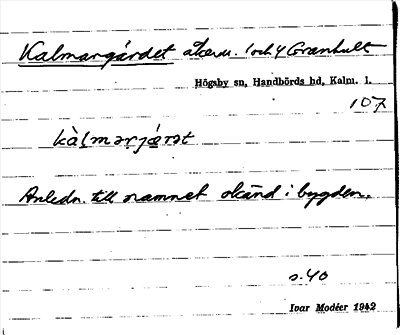 Kalmargärdet åkerm. 1 och 4 Granhult
Högsby sn, Handbörds hd, Kalm. l.
107
kàlmarjæ̀rət
Anledn. till namnet okänd i bygden.
s. 40
Ivar Modéer 1942